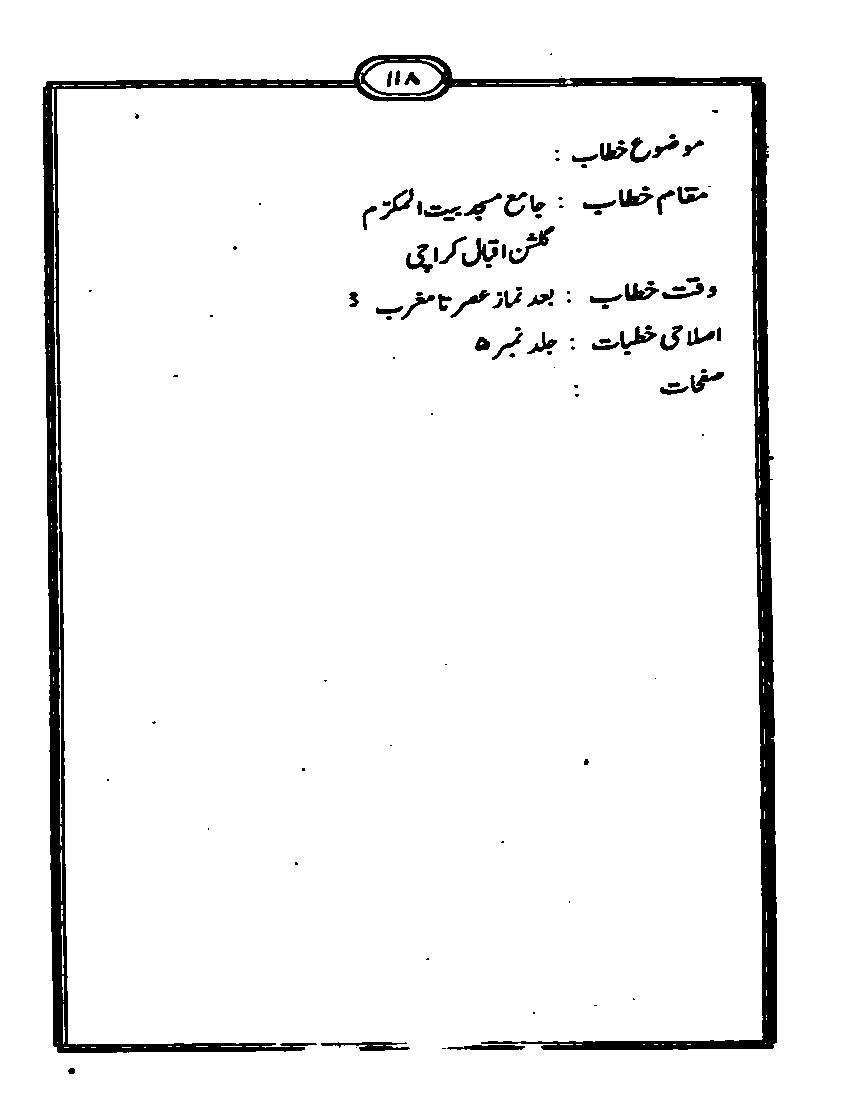 ۱۱۸
موضوع خطاب :
مقام خطاب : جامع مسجد بیت المکرّم
گلشن اقبال کراچی
وقت خطاب : بعد نماز عصر تا مغرب 3
اصلاحی خطبات : جلد نمبر ۵
صفحات :